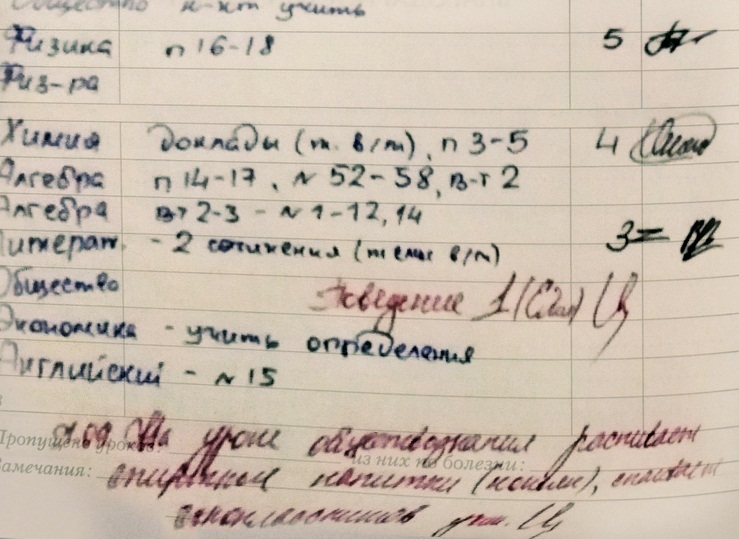 Общество к-кт учить
Физика п 16-18 5
Физ-ра
Химия доклады (т. в/т), п 3-5 4
Алгебра п 14-17, № 52-58, в-т 2
Алгебра вт 2-3 - № 1-12, 14
Литерат. - 2 сочинения (темы в/т) 3=
Общество
Поведение 1 (Един)
Экономика - учить определения
Английский - № 15
Пропущено уроков: На уроке обществознания распивает
из них по болезни:
Замечания: спиртные напитки (коньяк), спаивает
одноклассников